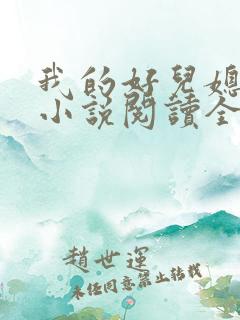 我的好兒媳
小說閱讀全
趙世運
未經同意禁止轉載